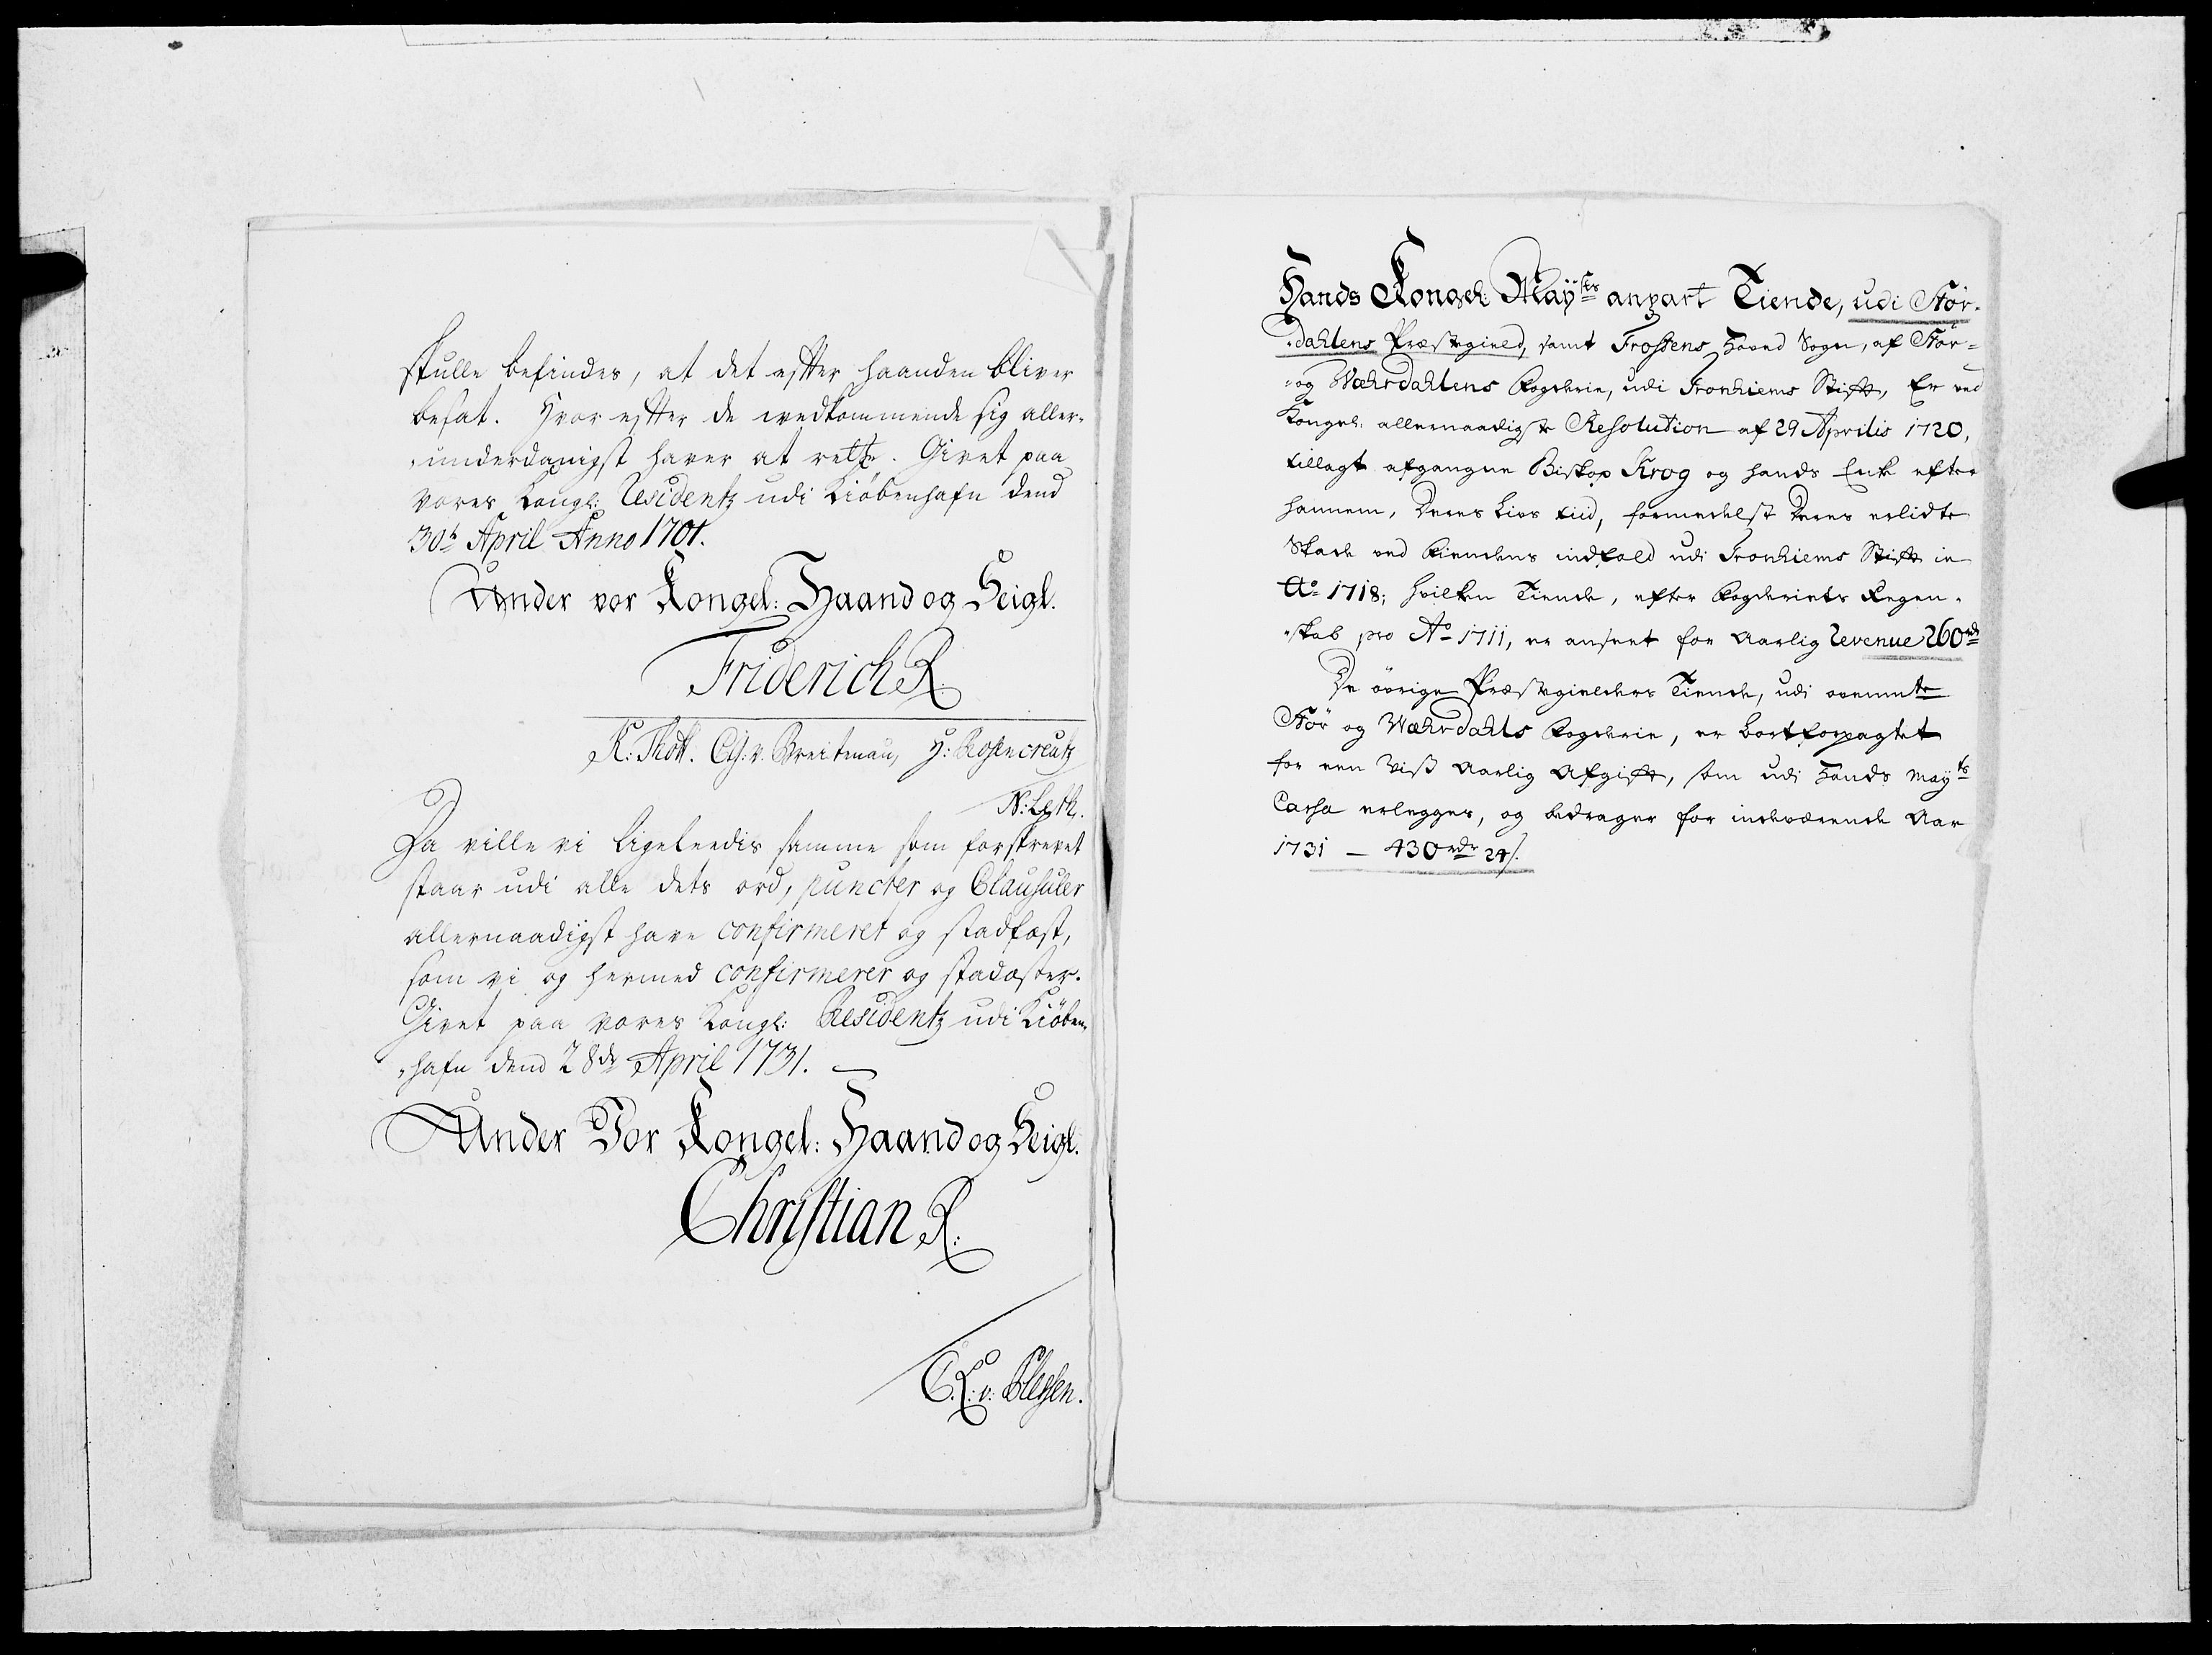 skulle befindes, at det effter haanden bliver
besat. Hvor effter de vedkommende sig aller-
underdanigst haver at rette. Givet paa
vores Kongl: Residentz udi Kiöbenhafn dend
30t April Anno 1701.
Under vor Kongel: Haand og Seigl.
Friderich R.
K: Thott. C. S: v. Breitenau, H: Rosencreutz
N: Leth.
Da ville vi ligeleedis samme som forskrevet
staar udi alle dets ord, puncter og Clausuler
allernaadigst have confirmeret og stadfæst,
som vi og hermed confirmerer og stadæster.
Givet paa vores Kongl: Residentz udi Kiöben-
hafn dend 28de April 1731.
Under Vor Kongel: Haand og Seigl.
Christian R.
C. L: v: Plessen.
Hands Kongel: Mayts anpart Tiende, udi Stör-
dahlens Præstegield, samt Frostens Hoved Sogn, af Stör-
og Wæhrdahlens Fogderie, udi Tronhiems Stifft, Er ved
Kongel: allernaadigste Resolution af 29 Aprilis 1720,
tillagt afgangne Biskop Krog og hands Enke efter
hannem, Deres Livs tiid, formedelst Deres erlidte
Skade ved Fiendens indfald udi Tronhiems Stifft in
Ao 1718; hvilken Tiende, efter Fogderiets Regen-
skab pro Ao 1711, er anført for Aarlig Revenue 260 rdr
De övrige Præstegielders Tiende, udi ovenmte
Stör og Wæhrdahls Fogderie, er bortforpagtet
for een Viss Aarlig Afgifft, som udi Hands Mayts
Cassa erlegges, og bedrager for indeværende Aar
1731 — 430 rdr 24 s.